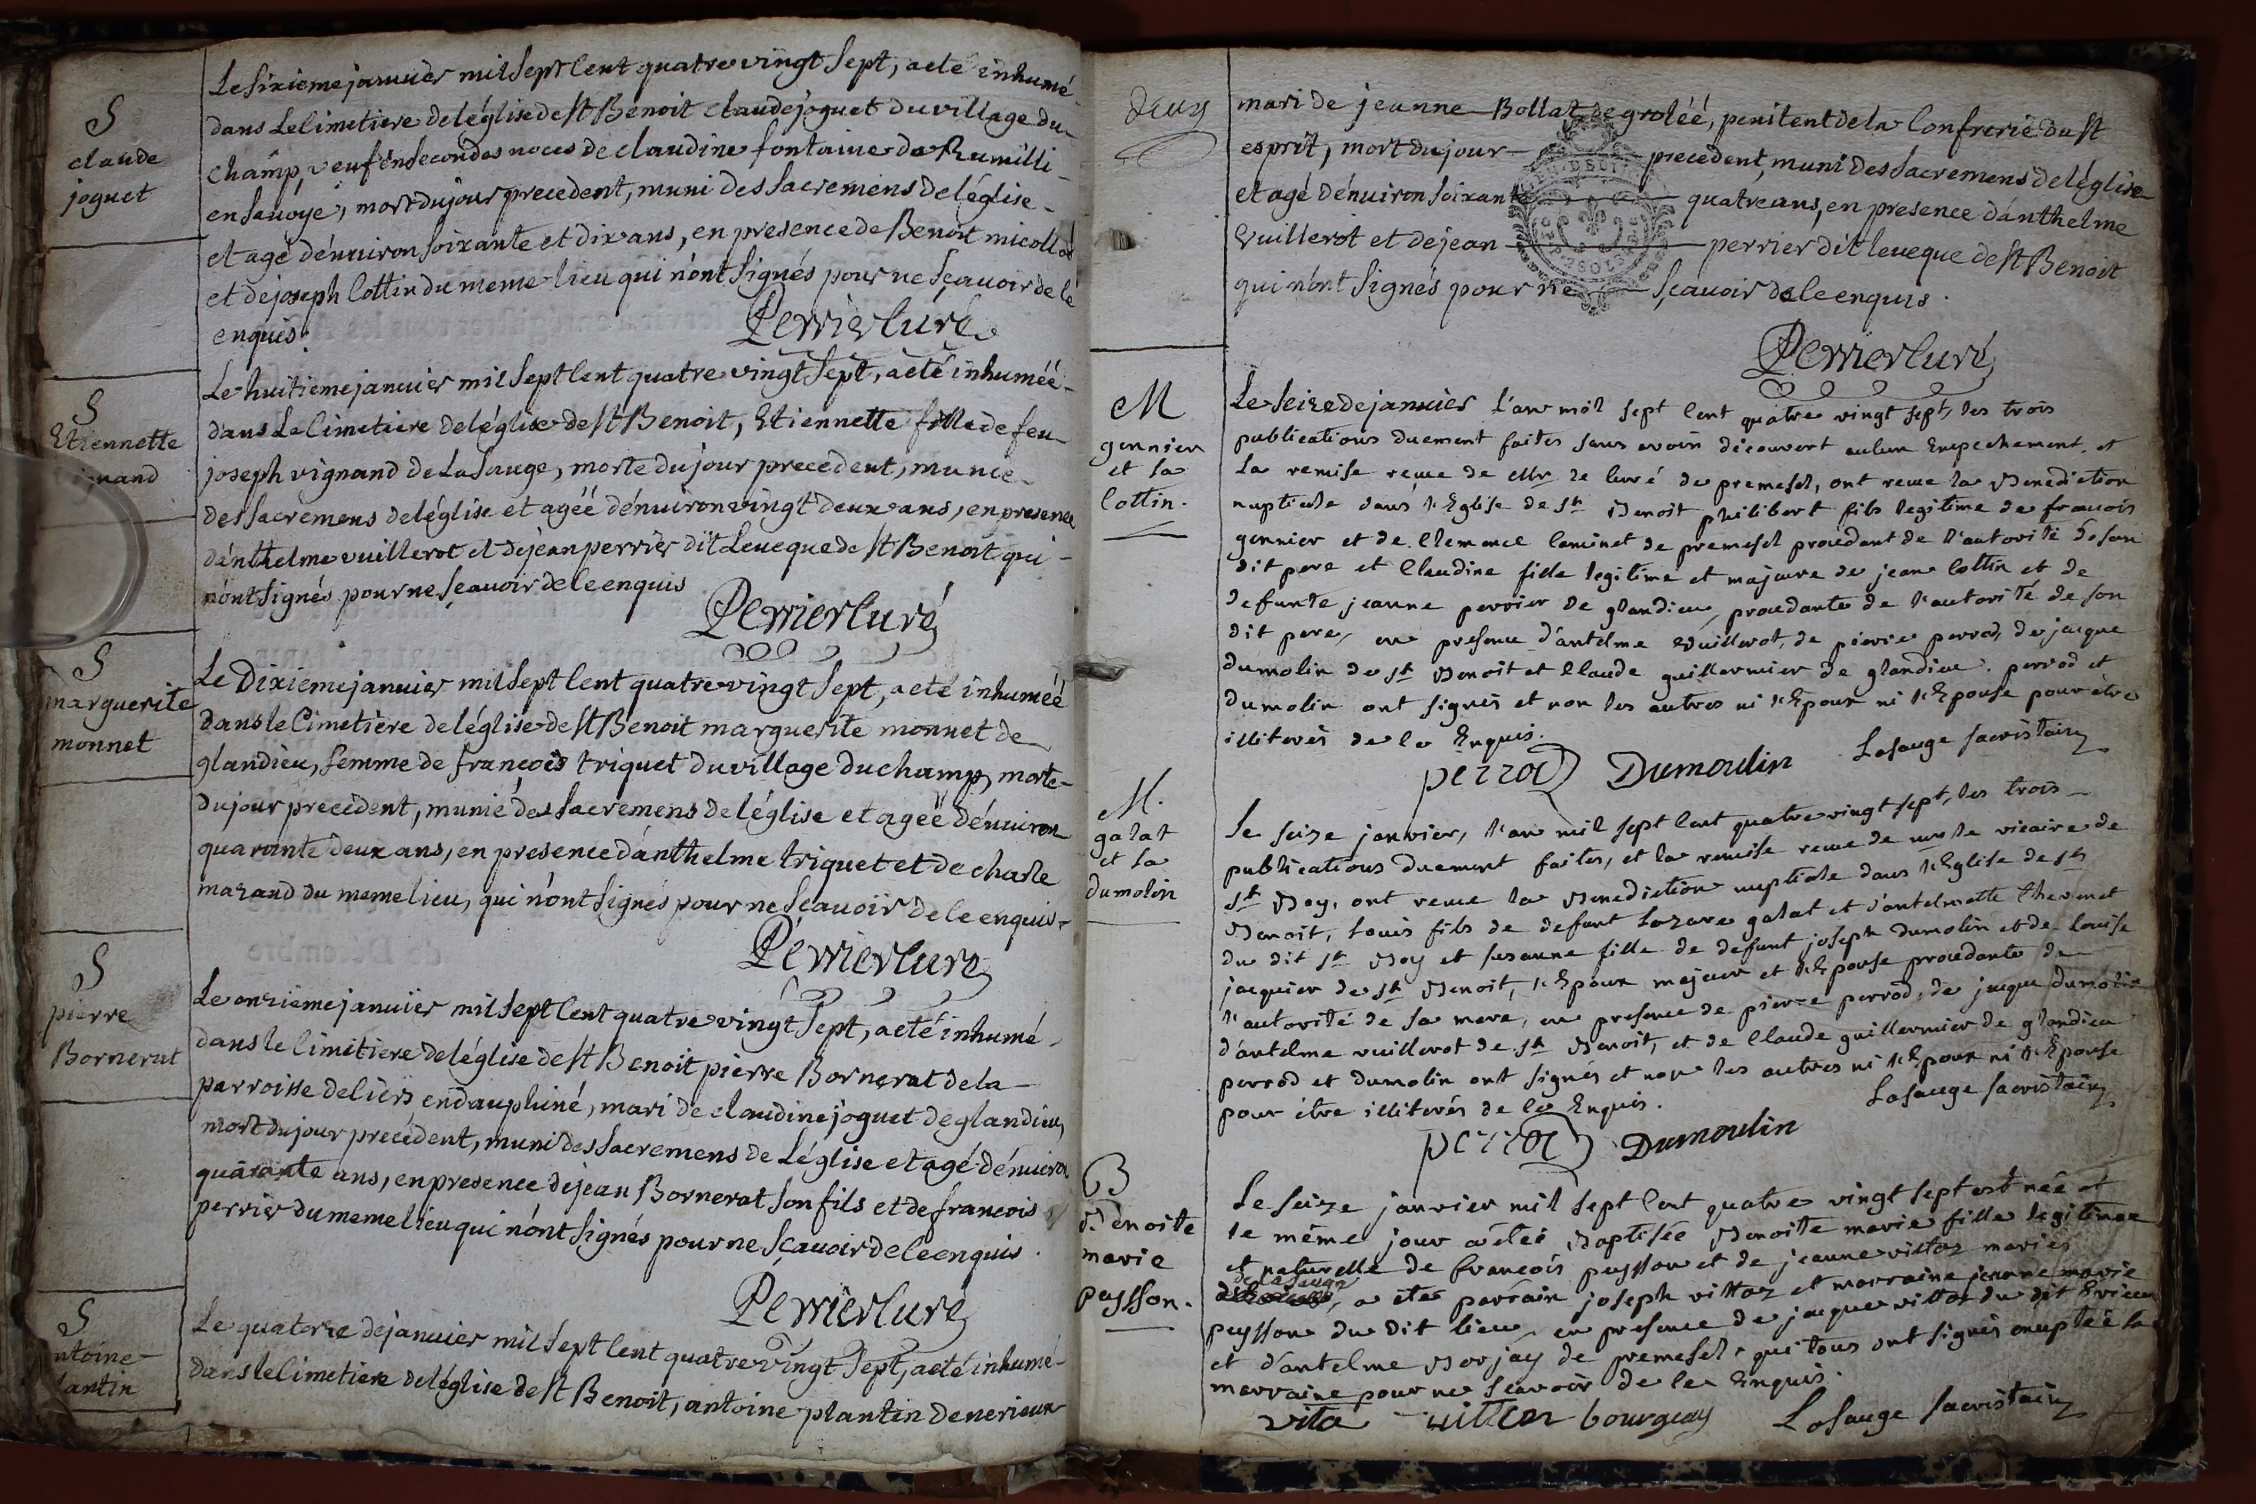 S
claude
joguet
Le sixieme januier mil sept Cent quatre vingt sept, a eté inhumé
dans Le Cimetiere de léglise de st Benoit claude joguet du village du
champ, veuf en secondes noces de claudine fontaine de Rumilli
en sauoye, mort du jour precedent, muni des sacremens de léglise
et agé d'enuiron soixante et dix ans, en presence de Benoit micollod
et de joseph Cottin du meme lieu qui n'ont signés pour ne sçauoir de le
enquis.
Perrier Curé
S
Etiennette
Le huitieme januier mil sept Cent quatre vingt sept, a eté inhuméé
dans Le Cimetiere de léglise de st Benoit, Etiennette fille de feu
joseph vignand de La sauge, morte du jour precedent, munie
des sacremens de léglise et agéé d'enuiron vingt deux ans, en presence
d'anthelme vuillerot et de jean perrier dit Leueque de st Benoit qui
n'ont signés pour ne sçauoir de le enquis
Perrier Curé
S
marguerite
monnet
Le Dixieme januier mil sept Cent quatre vingt sept, a eté inhuméé
dans le Cimetiere de léglise de st Benoit marguerite monnet de
glandieu, femme de francois triquet du village du champ, morte
du jour precedent, munié des sacremens de léglise et agéé d'enuiron
quarante deux ans, en presence d'anthelme triquet et de charle
mazaud du meme lieu, qui n'ont signés pour ne sçauoir de le enquis
Perrier Curé
S
pierre
Bornerat
Le onzième januier mil sept Cent quatre vingt sept, a eté inhumé
dans le Cimitiere de léglise de st Benoit pierre Bornerat de la
parroisse de liers en dauphiné, mari de claudine joguet de glandieu,
mort du jour precedent, muni des sacremens de Léglise et agé d'enuiron
quarante ans, en presence de jean Bornerat son fils et de francois
perrier du meme lieu qui n'ont signés pour ne sçauoir de le enquis.
Perrier Curé
S
Le quatorze de januier mil sept Cent quatre vingt sept, a eté inhumé
dans le Cimetiere de léglise de st Benoit, antoine plantin de nerieux
Deux
mari de jeanne Bollaz de groléé, penitent de la Confrerie du st
esprit, mort du jour precedent, muni des sacremens de léglise
et agé d'enuiron soixante quatre ans, en presence d'anthelme
Vuillerot et de jean perrier dit leueque de st Benoit
qui n'ont signés pour ne sçauoir de le enquis.
Perrier Curé
M
gonnier
et la
Cottin.
Le seize de januier l'an mil sept Cent quatre vingt sept, les trois
publications duement faites sans avoir découvert aulcun Empechement, et
la remise recue de Mr le Curé de premesel, ont recue la Benediction
nuptiale dans l'Eglise de st Benoit philibert fils legitime de francois
gonnier et de Clemence Caminet de premesel procedant de l'autorité de son
dit pere et Claudine fille legitime et majeure de jean Cottin et de
defunte jeanne perrier de glandieu, procedante de l'autorité de son
dit pere, en presence d'antelme Vuillerot, de pierre perrod, de jacque
dumolin de st Benoit et Claude guillermier de glandieu. perrod et
dumolin ont signés et non les autres ni l'Epoux ni l'Epouse pour être
illiterés de le Enquis.
perrod Dumoulin Lasauge sacristain
M.
galat
et la
dumolin
Le seize janvier, l'an mil sept Cent quatre vingt sept, les trois
publications duement faites, et la remise recue de mr le vicaire de
st Boy, ont recue la Benediction nuptiale dans l'Eglise de st
Benoit, Louis fils de defunt Lazare galat et d'antelmette thevenet
du dit st Boy et susanne fille de defunt joseph dumolin et de Louise
jacquier de st Benoit, l'Epoux majeur et l'Epouse procedante de
l'autorité de sa mere, en presence de pierre perrod, de jacque dumolin
d'antelme vuillerot de st Benoit, et de Claude guillermier de glandieu
perrod et dumolin ont signés et non les autres ni l'Epoux ni l'Epouse
pour être illiterés de le Enquis.
Lasauge sacristain
perrod Dumoulin
B
Benoite
marie
peysson.
Le seize janvier mil sept Cent quatre vingt sept est née et
le même jour a étée Baptisée Benoite marie fille legitime
et naturelle de francois peysson et de jeanne vittoz mariés
de la sauge
, a étée parrain joseph vittoz et marraine jeanne marie
peysson du dit lieu, en presence de jacque vittoz du dit Evieu
et d'antelme Borjay de premesel, qui tous ont signés exceptée la
marraine pour ne scavoir de le Enquis.
vita vitton bourgeay Lasauge sacristain